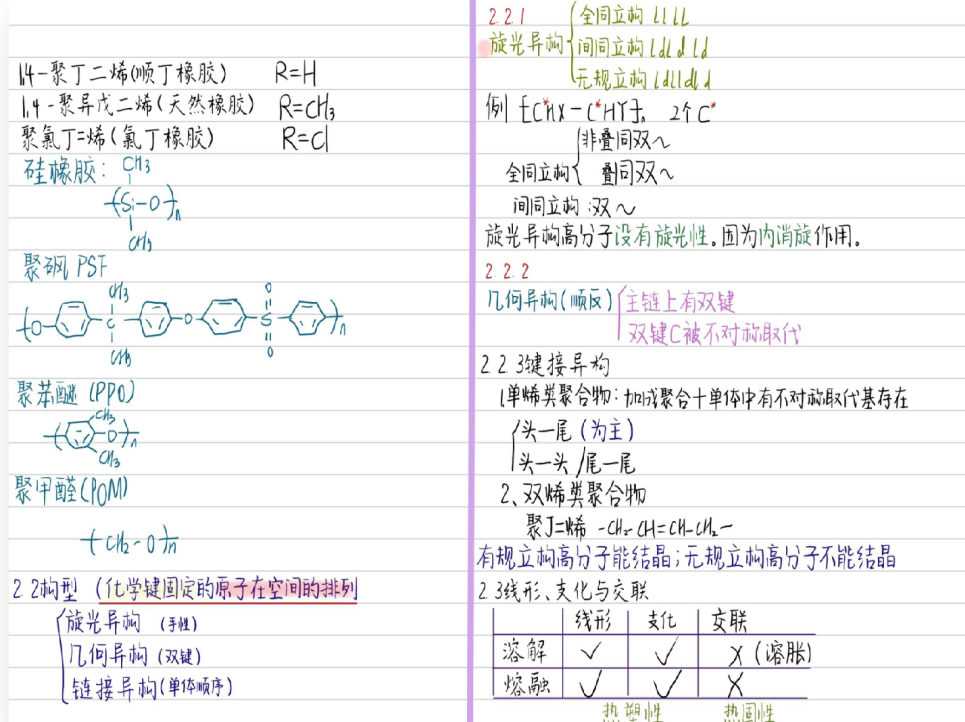 1,4-聚丁二烯(顺丁橡胶) R=H
1,4-聚异戊二烯(天然橡胶) R=CH₃
聚氯丁=烯(氯丁橡胶) R=Cl
硅橡胶: CH₃
{Si-O}n
CH₃
聚砜 PSF
CH₃ O
{O C O S }n
CH₃ O
聚苯醚 (PPO)
CH₃
{ O}n
CH₃
聚甲醛(POM)
{CH₂-O}n
2.2构型 (化学键固定的原子在空间的排列
旋光异构 (手性)
几何异构 (双键)
链接异构(单体顺序)
2.2.1 全同立构 llll
旋光异构 间同立构 ldld ld
无规立构 ldlldl d
例 [C*HX-C*HY]n 2个C*
非叠同双~
全同立构 叠同双~
间同立构:双~
旋光异构高分子没有旋光性。因为内消旋作用。
2.2.2
几何异构(顺反) 主链上有双键
双键C被不对称取代
2.2.3键接异构
1.单烯类聚合物:加成聚合+单体中有不对称取代基存在
头一尾(为主)
头一头/尾一尾
2、双烯类聚合物
聚丁=烯 -CH₂-CH=CH-CH₂-
有规立构高分子能结晶;无规立构高分子不能结晶
2.3线形、支化与交联
线形 支化 交联
溶解 ✓ ✓ ✗(溶胀)
熔融 ✓ ✓ ✗
热塑性 热固性